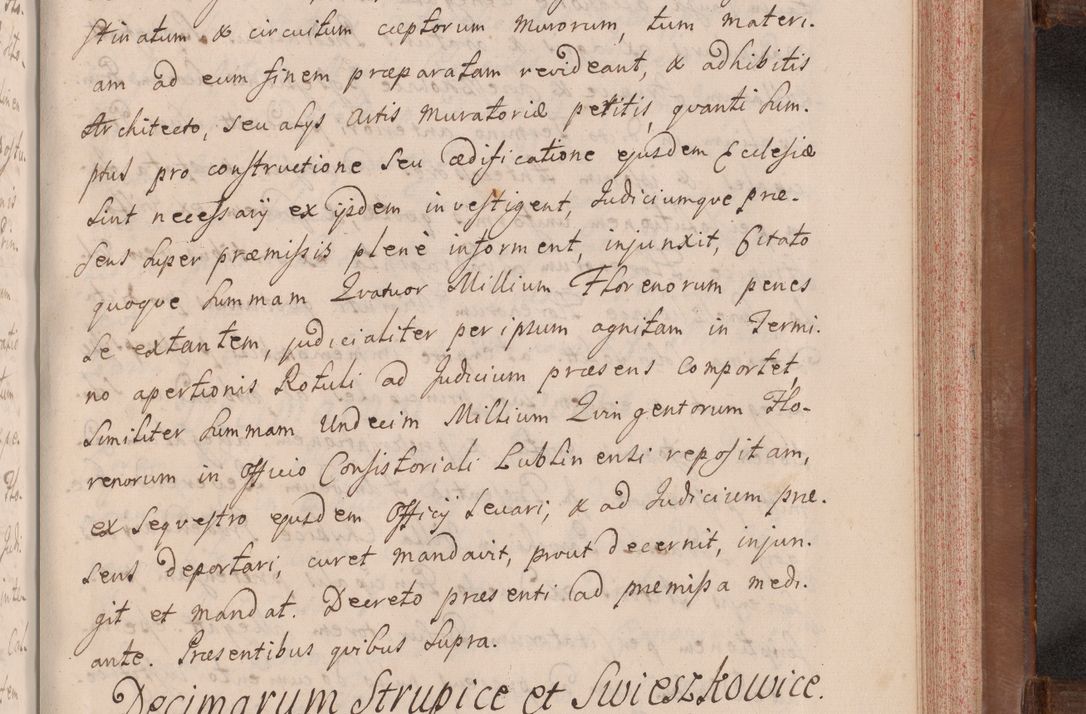 stinatum & circuitum cæptorum Murorum, tum materi-
am ad eum finem præparatam revideant, & adhibitis
Architecto, seu alys Artis Muratoriæ peritis, quanti sum-
ptus pro constructione seu ædificatione ejusdem Ecclesiæ
sint necessary ex ysdem investigent, Judiciumque præ-
sens super præmissis plenè informent, injunxit, Citato
quoque summam Quatuor Millium Florenorum penes
se extantem, judicialiter per ipsum agnitam in Termi-
no apertionis Rotuli ad Judicium præsens comportet,
similiter summam Undecim Millium Quingentorum Flo-
renorum in Officio Consistoriali Lublinensi repositam,
ex sequestro ejusdem Officy levari, & ad Judicium præ-
sens deportari, curet mandavit, prout decernit, injun-
git et mandat. Decreto præsenti ad præmissa medi-
ante. Præsentibus quibus supra.
Decimarum Strupice et Swieszkowice.